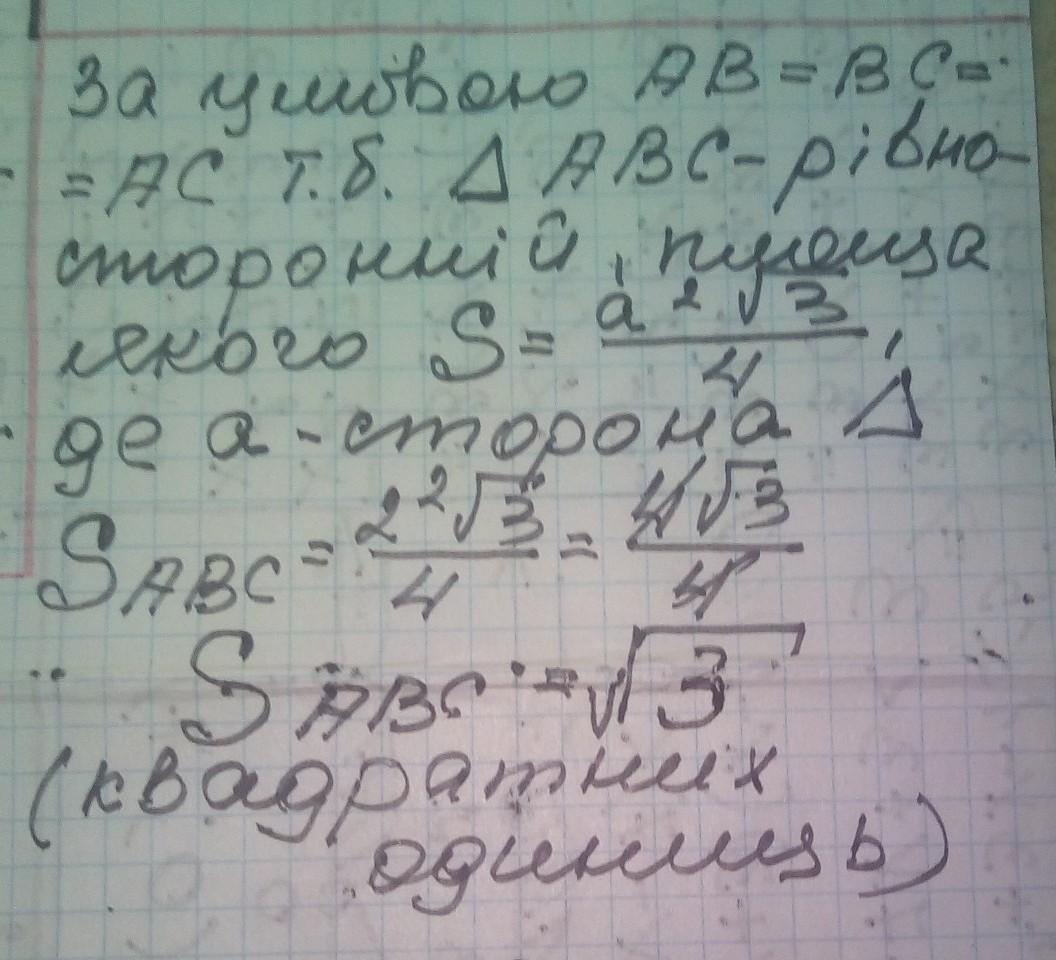 За умовою AB = BC =
= AC т.б. Δ ABC - рівно-
сторонній, площа
якого S = a²√3/4,
де a - сторона Δ
S ABC = 2²√3/4 = 4√3/4
S ABC = √3
(квадратних
одиниць)